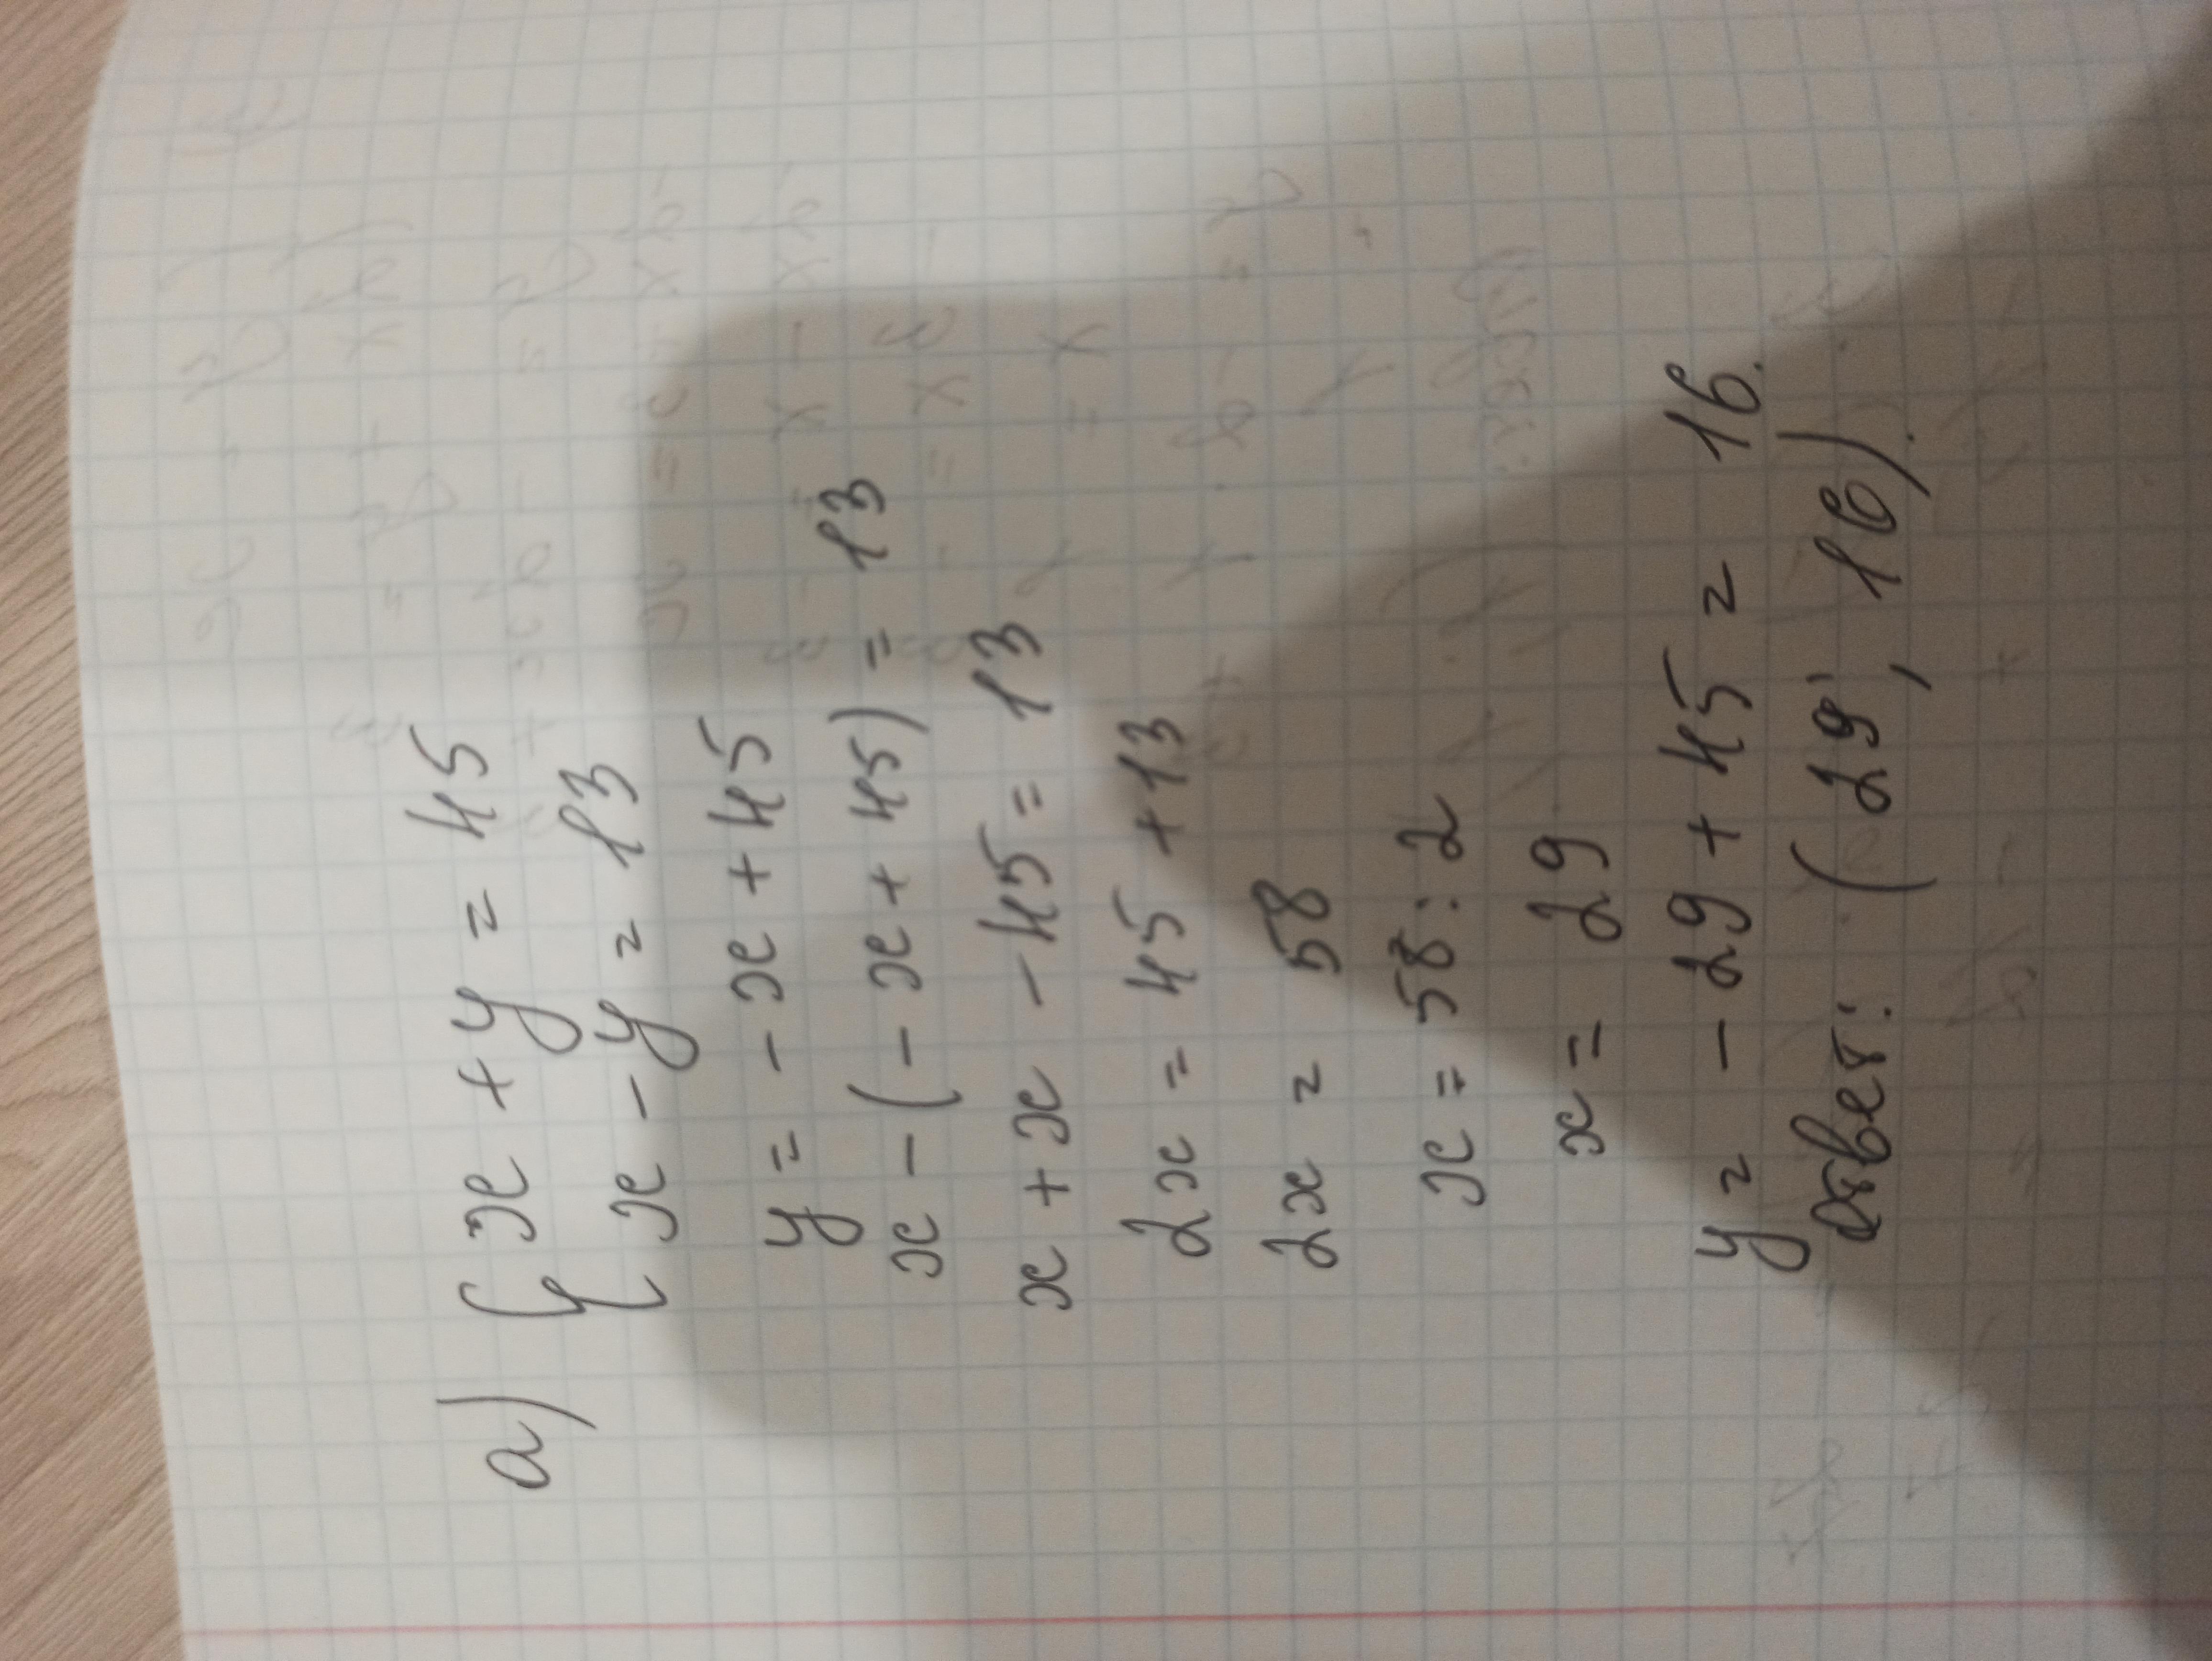 а) { x + y = 45
{ x - y = 13
y = - x + 45
x - (- x + 45) = 13
x + x - 45 = 13
2x = 45 + 13
2x = 58
x = 58 : 2
x = 29
y = - 29 + 45 = 16.
Ответ: (29; 16).